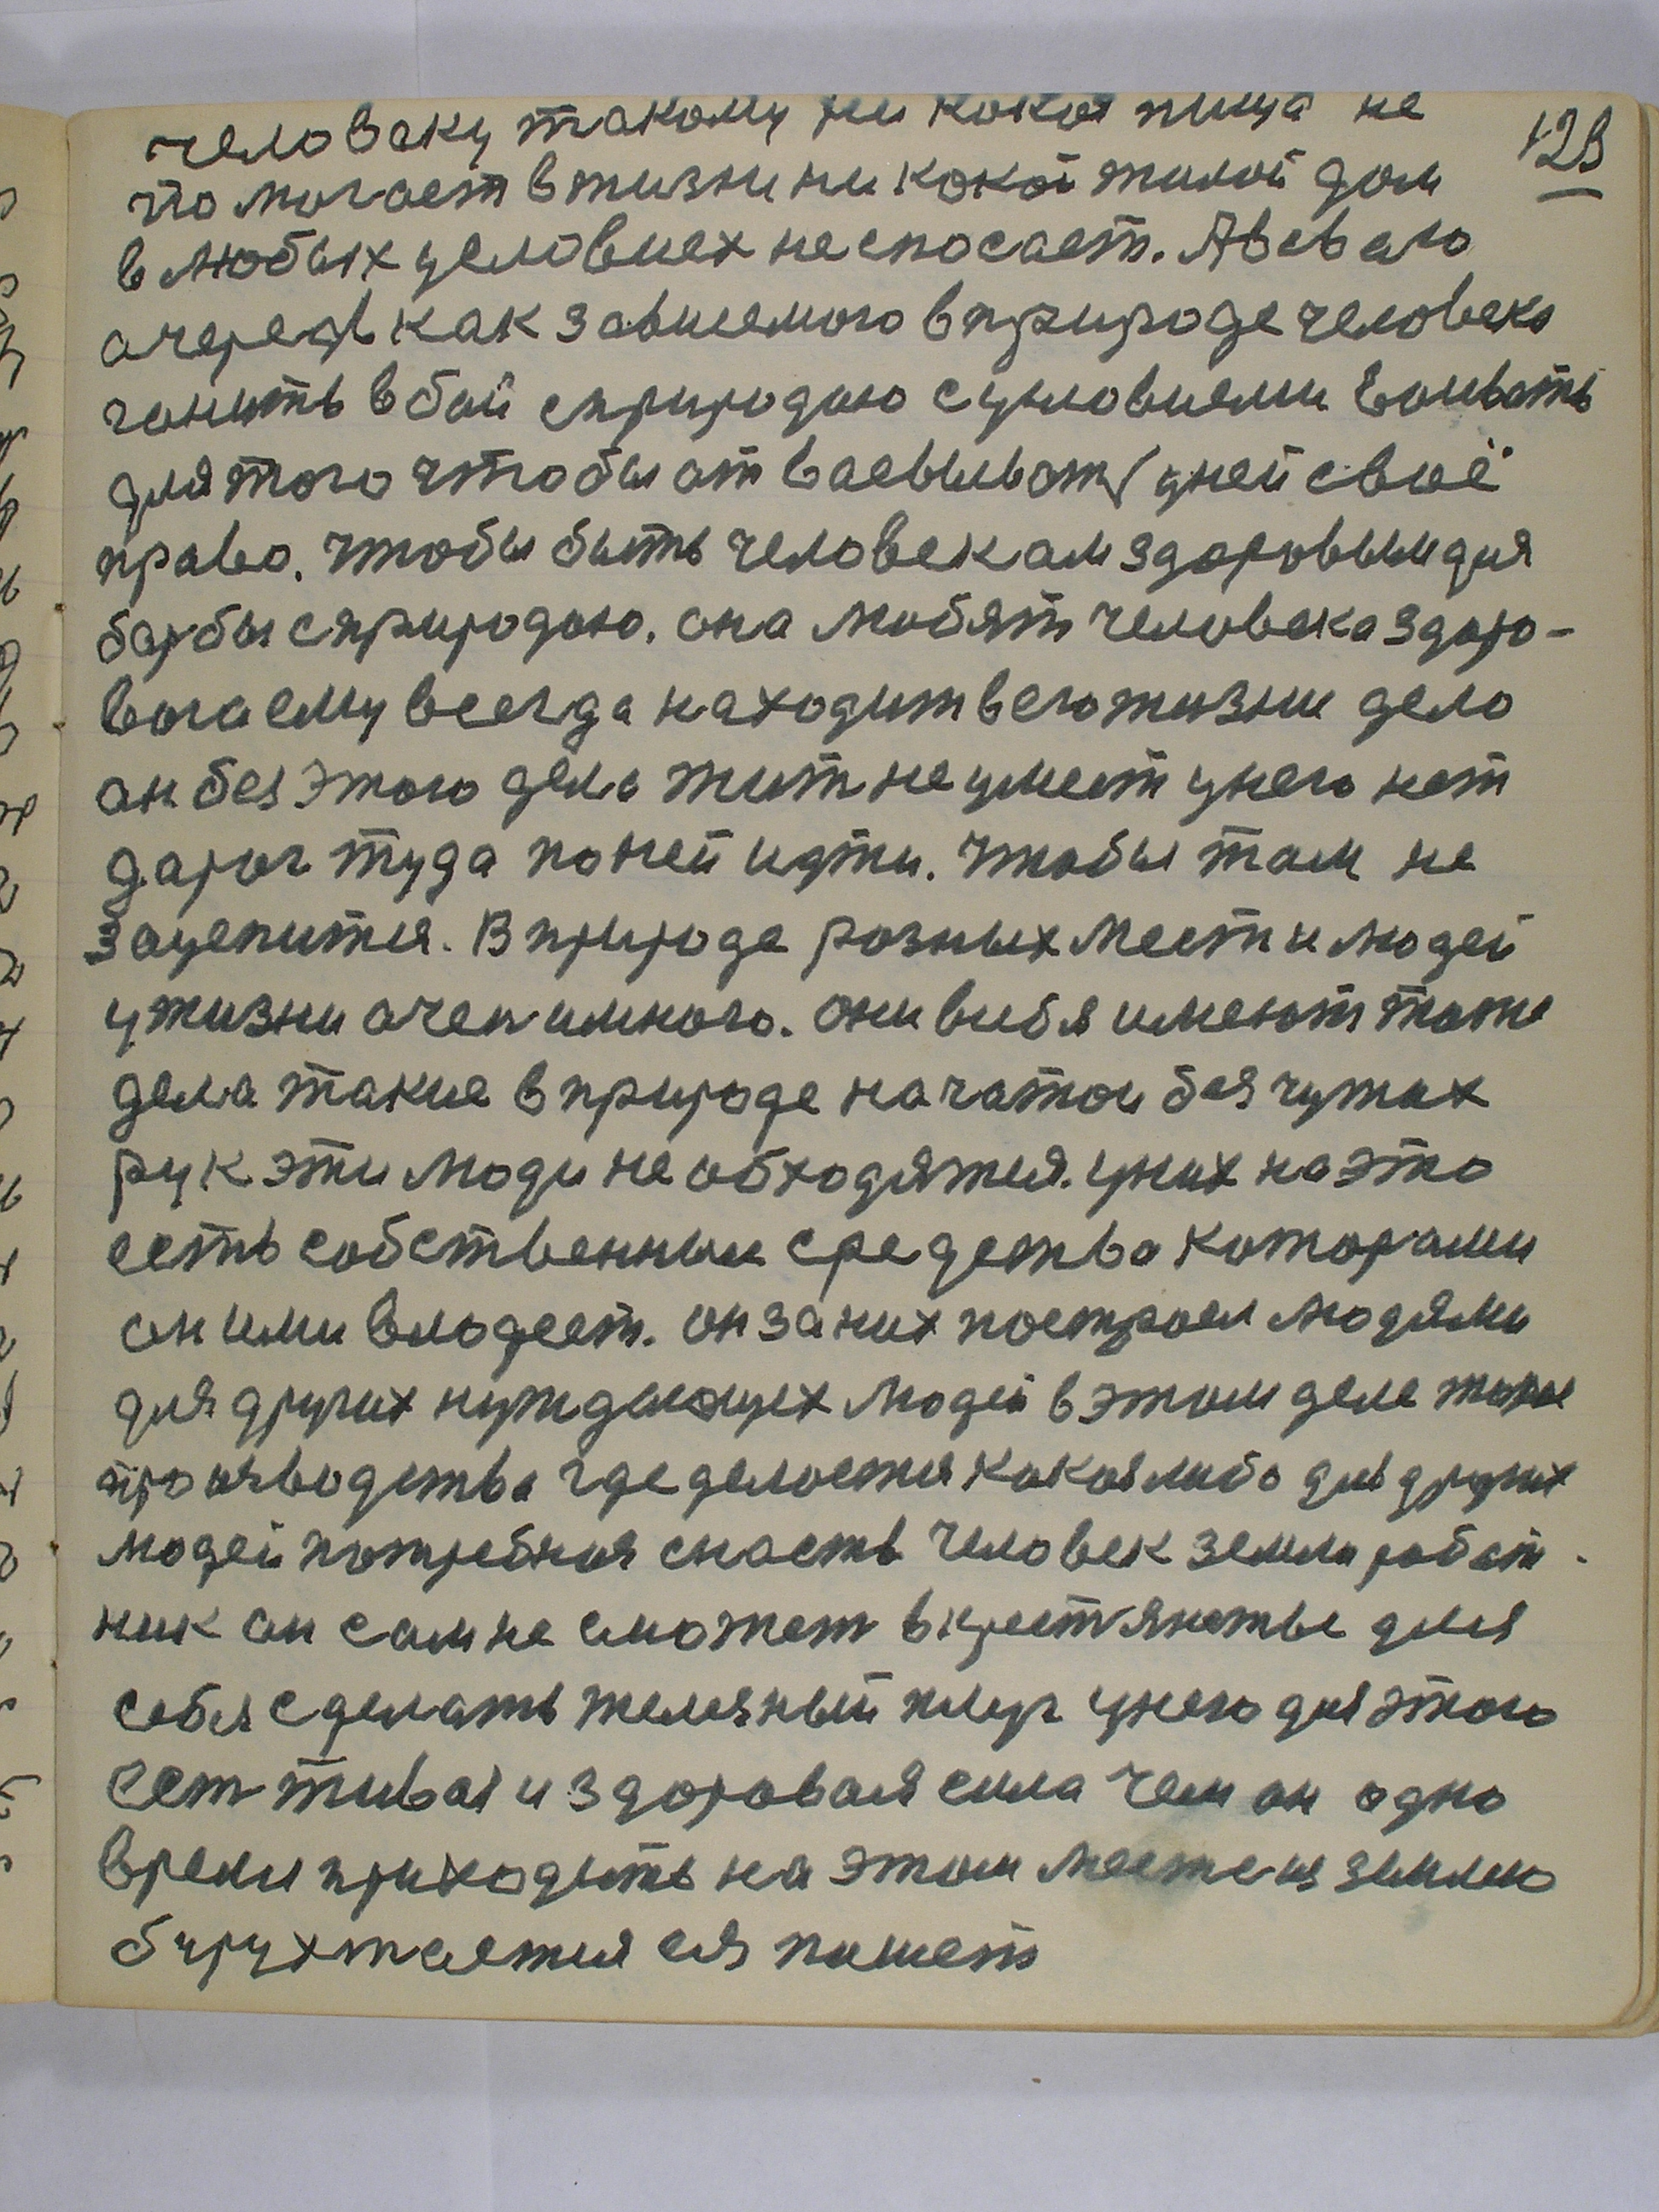 129
человеку такому ни какая пища не
помогает в жизни ни какой жилой дом
в любых условиех не спосает. А в св аю
очередь как зависемого в природе человека
гонить в бой с природаю с условиеми воивать
для того чтобы отваевывать у ней своё
право. чтобы быть человекам здоровым для
барбы с природаю. она любят человека здоро-
вога ему всегда находит в его жизни дело
он без этого дела жит не умеет у него нет
дарог туда по ней идти. чтобы там не
зацепится. В природе разных мест и людей
у жизни очен и много. они в себя имеют тоже
дела такие в природе начатои без чужих
рук эти люди не обходятся. у них на это
есть собственныи средства которами
он ими влодеет. он за них построел людями
для других нуждающех людей в этом деле тоже
производства где делоется какоя либо для других
людей потребная снасть человек земли работ-
ник он сам не сможет в крестянстве для
себя сделать железный плуг у него для этого
сет живая и здоровая сила чем он одно
время приходить на этом месте из землю
бурухтается ея пашет